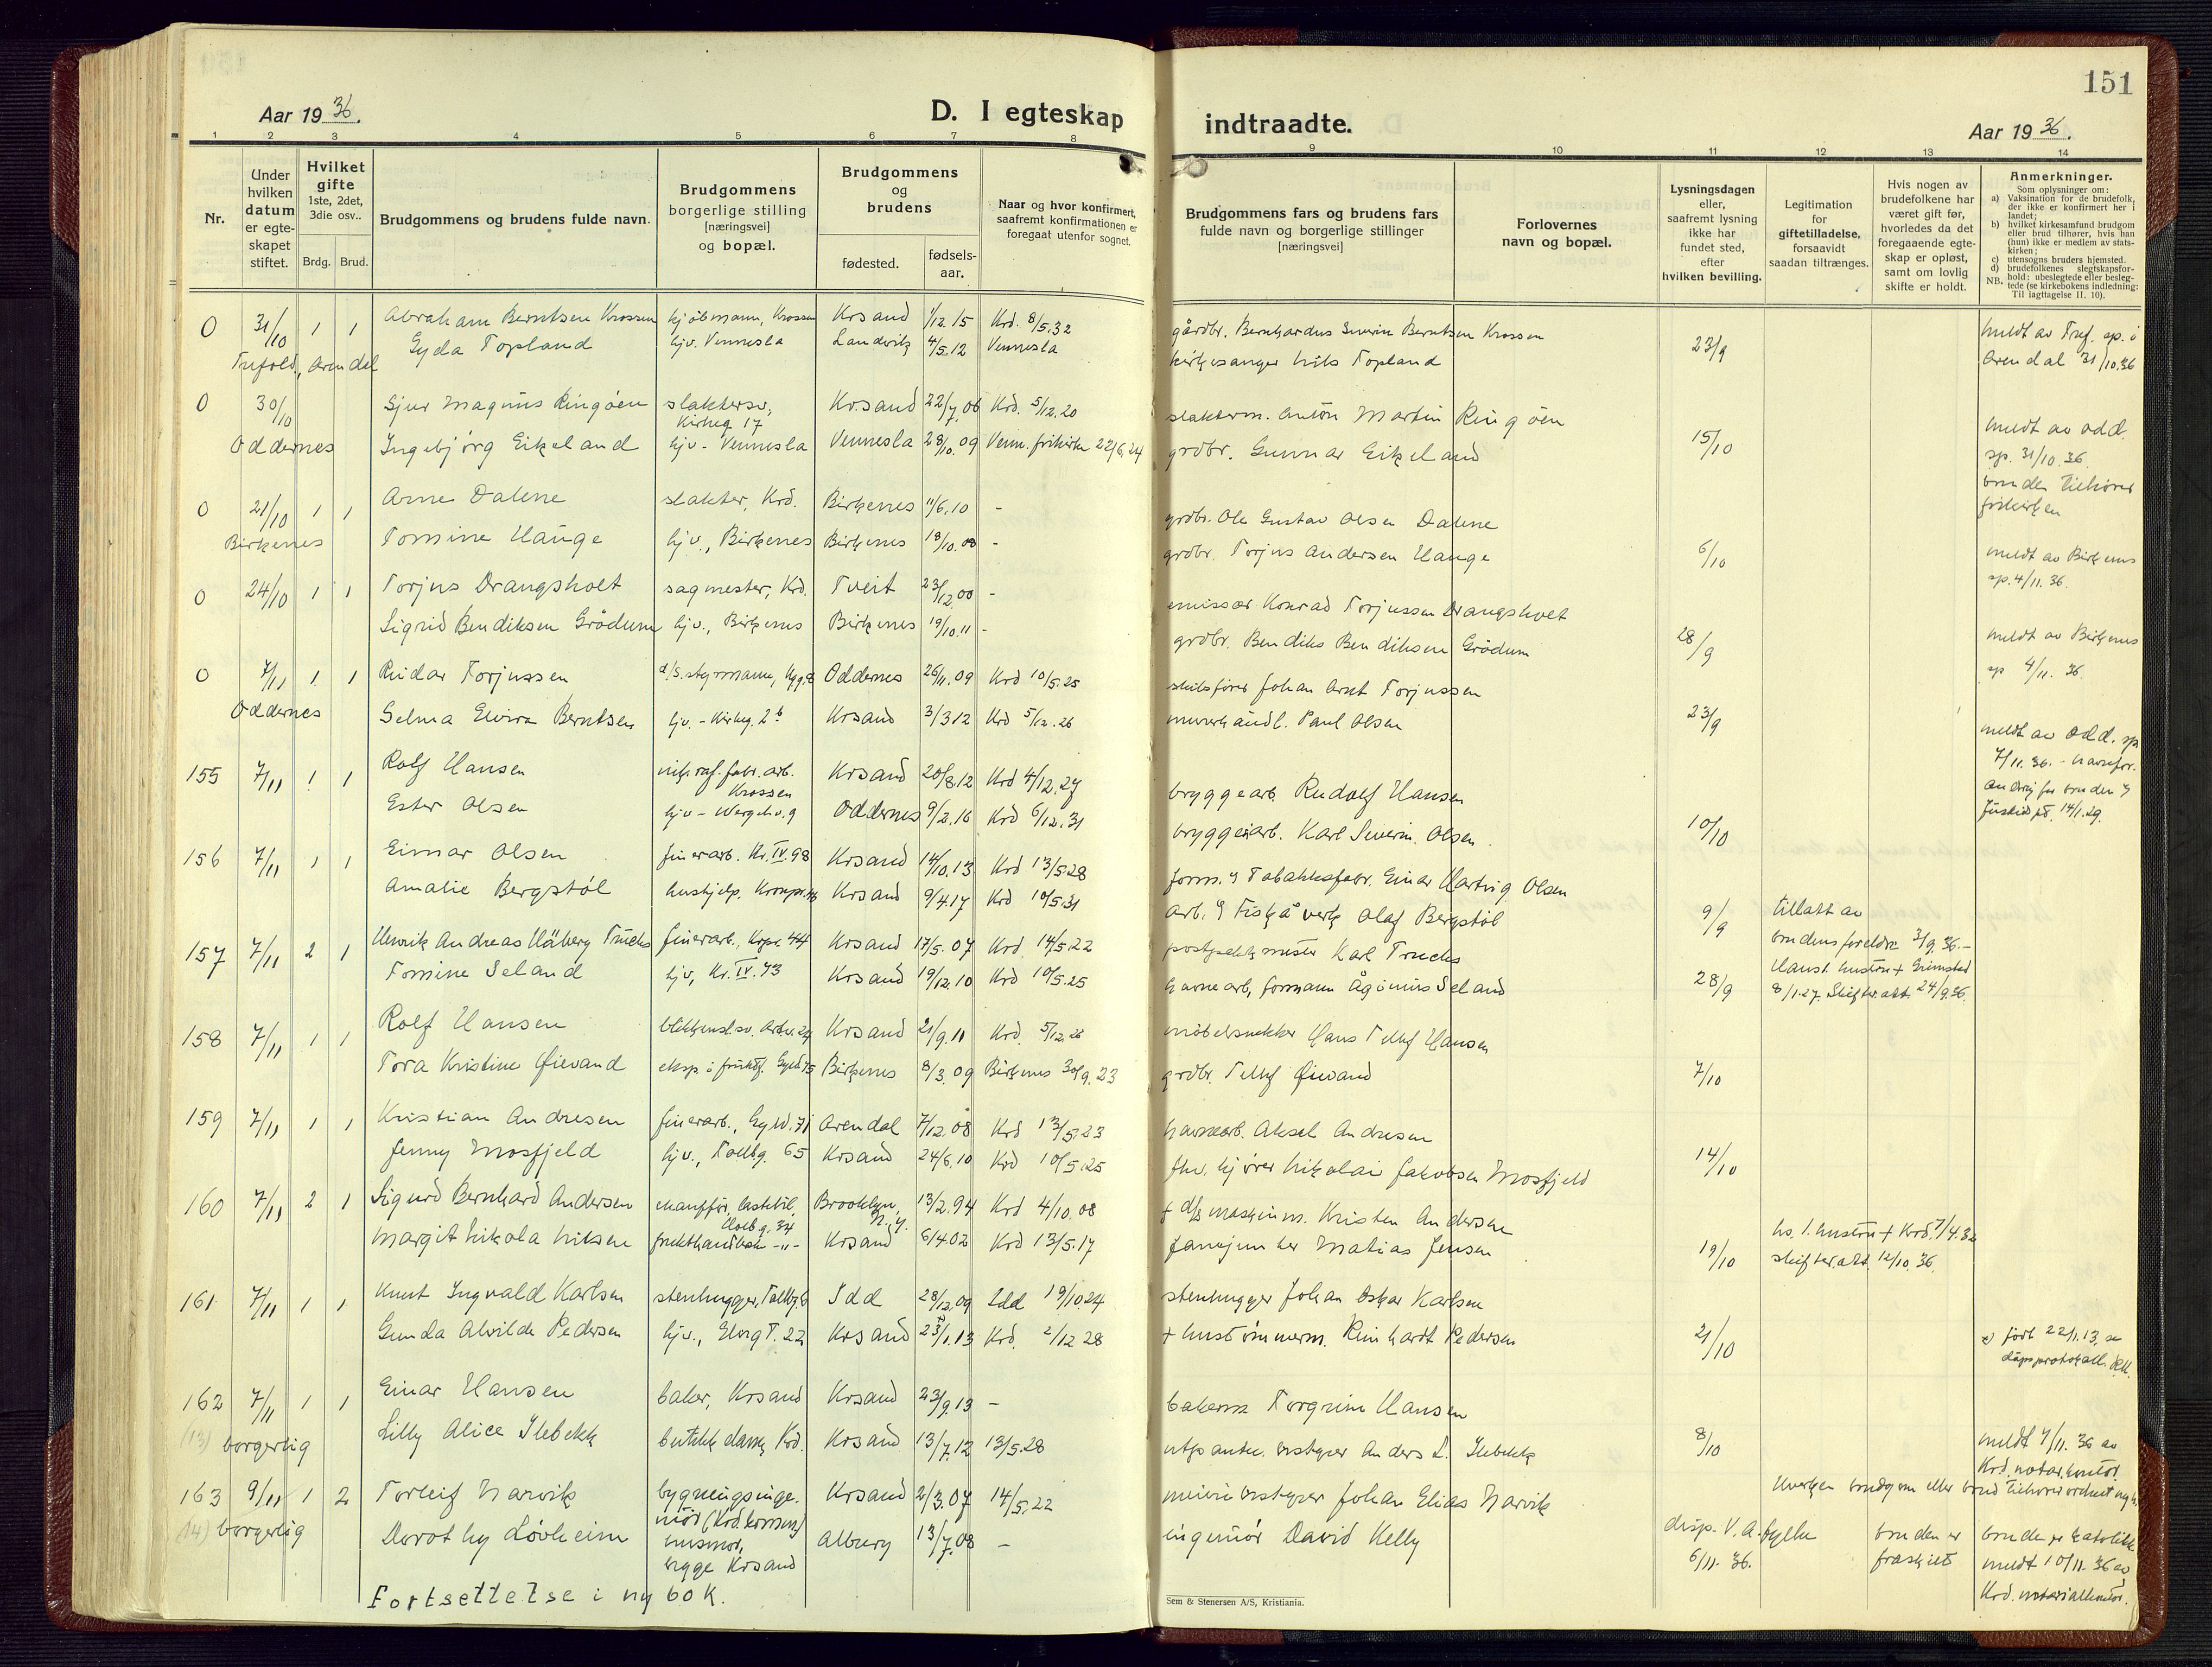 151
Aar 1936.
D. I egteskap
indtraadte.
Aar 1936.
1 2 3 4 5 6 7 8 9 10 11 12 13 14
Nr.
Under hvilken datum er egte-skapet stiftet.
Hvilket gifte 1ste, 2det, 3die osv..
Brdg. Brud.
Brudgommens og brudens fulde navn.
Brudgommens borgerlige stilling [næringsvei] og bopæl.
Brudgommens og brudens
fødested.
fødsels-aar.
Naar og hvor konfirmert, saafremt konfirmationen er foregaat utenfor sognet.
Brudgommens fars og brudens fars fulde navn og borgerlige stillinger [næringsvei]
Forlovernes navn og bopæl.
Lysningsdagen eller, saafremt lysning ikke har fundet sted, efter hvilken bevilling.
Legitimation for giftetilladelse, forsaavidt saadan tiltrænges.
Hvis nogen av brudefolkene har været gift før, hvorledes da det foregaaende egte-skap er opløst, samt om lovlig skifte er holdt.
Anmerkninger.
Som oplysninger om:
a) Vaksination for de brudefolk, der ikke er konfirmert her i landet;
b) hvilket kirkesamfund brudgom eller brud tilhører, hvis han (hun) ikke er medlem av stats-kirken;
c) utensogns bruders hjemsted.
d) brudefolkenes slegtskapsfor-hold: ubeslegtede eller besleg-tede (se kirkebokens indledning: Til iagttagelse II. 10).
NB.
0 31/10 1 1 Abraham Berntsen Krossen kjøbmann, Krossen Krsand 1/12.15 Krd. 8/5.32 gårdbr. Bernhardus Severin Berntsen Krossen meldt av Tref. sp. i
Gyda Topland hjv. Vennesla Landvik 4/5.12 Vennesla kirkesanger Nils Topland 23/9 Arendal 31/10.36
Trefold., Arendal
0 30/10 Sjur Magnus Ringøen slaktersv., Kirkeg 17 Krsand 22/7.06 Krd. 5/12.20 slakterm. Anton Martin Ringøen meldt av Odd.
Oddernes Ingebjørg Eikeland hjv - Vennesla Vennesla 28/10.09 Venn. frikirke 22/6.24 grdbr. Gunnar Eikeland 15/10 sp. 31/10.36.
bruden tilhører frikirken
0 21/10 1 1 Arne Dalene slakter, Krd. Birkenes 11/6.10 - grdbr. Ole Gustav Olsen Dalene
Birkenes Tomine Hauge hjv., Birkenes Birkenes 18/10.08 - grdbr. Torjus Andersen Hauge 6/10 meldt av Birkenes
sp. 4/11.36.
0 24/10 1 1 Torjus Drangsholt sagmester, Krd. Tveit 23/12.00 - emissær Konrad Torjussen Drangsholt
Sigrid Bendiksen Grødum hjv., Birkenes Birkenes 19/10.11 - grdbr. Bendiks Bendiksen Grødum 28/9 meldt av Birkenes
sp 4/11.36.
0 7/11 1 1 Reidar Torjussen Oddernes 26/11.09 Krd 10/5.25 skibsfører Johan Arnt Torjussen
Oddernes Selma Elvira Berntsen hjv. - Kirkeg. 2b Krsand 3/3 12 Krd 5/12.26 Paul Olsen 23/9 meldt av Odd. sp
7/11.36.
14/1.29.
155 7/11 1 1 Rolf Hansen nik. raf. fabr. arb. Krossen Krsand 20/8.12 Krd 4/12.27 bryggearb. Rudolf Hansen
Ester Olsen Oddernes 9/2.16 Krd 6/12.31 bryggeriarb. Karl Severin Olsen 10/10
156 7/11 1 1 Einar Olsen finerarb. Kr. IV. 98 Krsand 14/10.13 Krd 13/5.28 form. v Tobakksfabr. Einar Hartvig Olsen
Amalie Bergstøl Krsand 9/4.17 Krd 10/5.31 arb. v Fiskå verk Olaf Bergstøl 9/9 tillatt av
brudens foreldre 3/9.36.-
157 7/11 2 1 Henrik Andreas Håberg finerarb., 44 Krsand 17/5.07 Krd. 14/5.22 Karl
Tomine Seland hjv, Kr. IV. 43 Krsand 19/12.10 Krd 10/5.25 havnearb. formann Ågimius Seland 28/9 Hans 1. hustru + Grimstad
8/1.27. Skifter.att. 24/9.36.
158 7/11 1 1 Rolf Hansen Krsand 21/9.11 Krd. 5/12.26 møbelsnekker Hans Tellef Hansen
Tora Kristine Øievand eksp. i fruktf. Gyld 75 Birkenes 8/3.09 Birkenes 30/9.23 grdbr. Tellef Øievand 7/10
159 7/11 1 1 Kristian Andresen finerarb., Gyld. 71 Arendal 7/12.08 Krd 13/5.23 havnearb. Aksel Andresen
Jenny Mosfjeld hjv., Tollbg. 65 Krsand 24/6.10 Krd 10/5.25 fhv. kjører Nikolai Jakobsen Mosfjeld 14/10
160 7/11 2 1 Sigurd Bernhard Andersen chauffør, lastebil, Holbg. 34 Brooklyn, N.Y. 13/2.94 Krd 4/10.08 + d/s maskinm. Kristen Andersen
Margit Nikola Nilsen -"- Krsand 6/4.02 Krd 13/5.17 Matias Jensen 19/10 hs. 1. hustru + Krd. 7/4.32
skifter.att. 12/10.36.
161 7/11 1 1 Knut Ingvald Karlsen stenhugger, Tollbg. 6 Idd 28/12.09 Idd 19/10.24 stenhugger Johan Oskar Karlsen
Gunda Alvilde Pedersen hjv., Elvegt. 22 Krsand 23/1.13 Krd. 2/12 28 + hustømmerm. Reinhardt Pedersen 21/10 x) født 22/1.13, se
dåpsprotokoll.
162 7/11 1 1 Einar Hansen baker, Krsand Krsand 23/9.13 - bakerm Torgrim Hansen
(13) borgerlig Lilly Alice Ilebekk butikkdame, Krd. Krsand 13/7.12 13/5.28 Anders L. Ilebekk 8/10 meldt 7/11.36 av
Krd. notar.kontor.
163 9/11 1 2 Torleif Narvik bygningsinge-niør (Krd. komm.) Krsand 2/3.07 14/5.22 meieribestyrer Johan Elias Narvik Hverken brudgom eller brud tilhører
(14) borgerlig Dorothy Løvheim husmor, begge Krsand Albury 13/7.08 - ingeniør David Kelly disp. V.A. fylke
6/11.36. bruden er
fraskilt bruden er katolikk.
meldt 10/11.36 av
Krd. notarialkontor.
Fortsettelse i ny bok.
Sem & Stenersen A/S, Kristiania.